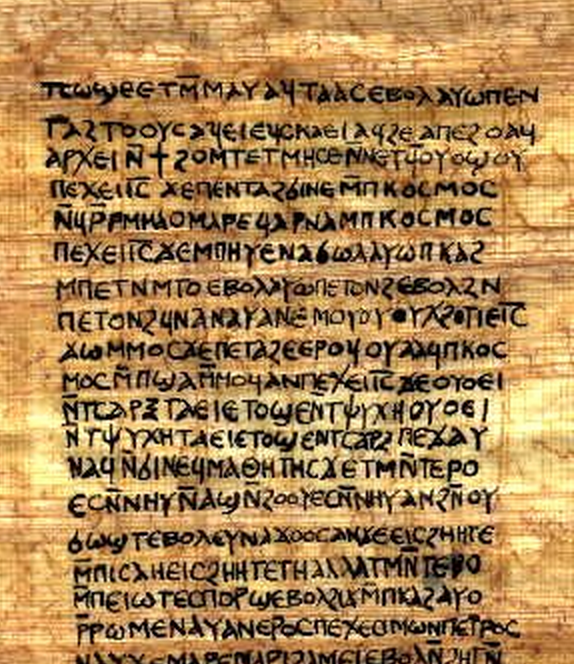 ⲡⲥⲱϣⲉⲉⲧⲙ̅ⲙⲁⲩⲁϥⲧⲁⲁⲥⲉⲃⲟⲗⲁⲩⲱⲡⲉⲛ
ⲧⲁϩⲧⲟⲟⲩⲥⲁϥⲉⲓⲉϥⲥⲕⲁⲉⲓⲁϥϩⲉⲁⲡⲉϩⲟⲁϥ
ⲁⲣⲭⲉⲓⲛ̅ϯϩⲟⲙⲧⲉⲧⲙⲏⲥⲉⲛ̅ⲛⲉⲧϥⲟⲩⲟϣⲟⲩ
ⲡⲉϫⲉⲓ̅ⲥ̅ϫⲉⲡⲉⲛⲧⲁϩϭⲓⲛⲉⲙ̅ⲡⲕⲟⲥⲙⲟⲥ
ⲛ̅ϥⲣ̅ⲣⲙⲙⲁⲟⲙⲁⲣⲉϥⲁⲣⲛⲁⲙⲡⲕⲟⲥⲙⲟⲥ
ⲡⲉϫⲉⲓ̅ⲥ̅ϫⲉⲙⲡⲏⲩⲉⲛⲁϭⲱⲗⲁⲩⲱⲡⲕⲁϩ
ⲙⲡⲉⲧⲛⲙⲧⲟⲉⲃⲟⲗⲁⲩⲱⲡⲉⲧⲟⲛϩⲉⲃⲟⲗϩⲛ
ⲡⲉⲧⲟⲛϩϥⲛⲁⲛⲁⲩⲁⲛⲉⲙⲟⲩⲟⲩⲭϩⲟⲧⲓⲉⲓ̅ⲥ̅
ϫⲱⲙⲙⲟⲥϫⲉⲡⲉⲧⲁϩⲉⲉⲣⲟϥⲟⲩⲁⲁϥⲡⲕⲟⲥ
ⲙⲟⲥⲙ̅ⲡϣⲁⲙ̅ⲙⲟϥⲁⲛⲡⲉϫⲉⲓ̅ⲥ̅ϫⲉⲟⲩⲟⲉⲓ
ⲛ̅ⲧⲥⲁⲣⲝⲧⲁⲉⲓⲉⲧⲟϣⲉⲛ̅ⲧⲯⲩⲭⲏⲟⲩⲟⲉⲓ
ⲛ̅ⲧⲯⲩⲭⲏⲧⲁⲉⲓⲉⲧⲟϣⲉⲛⲧⲥⲁⲣⲝⲡⲉϫⲁⲩ
ⲛⲁϥⲛ̅ϭⲓⲛⲉϥⲙⲁⲑⲏⲧⲏⲥϫⲉⲧⲙⲛ̅ⲧⲉⲣⲟ
ⲉⲥⲛ̅ⲛⲏⲩⲛ̅ⲁϣⲛ̅ϩⲟⲟⲩⲉⲥⲛ̅ⲛⲏⲩⲁⲛϩⲛ̅ⲟⲩ
ϭⲱϣⲧⲉⲃⲟⲗⲉⲩⲛⲁϫⲟⲟⲥⲁⲛϫⲉⲉⲓⲥϩⲏⲏⲧⲉ
ⲙ̅ⲡⲓⲥⲁⲏⲉⲓⲥϩⲏⲏⲧⲉⲧⲏⲁⲗⲗⲁⲧⲙⲛ̅ⲧⲉⲣⲟ
ⲙ̅ⲡⲉⲓⲱⲧⲉⲥⲡⲟⲣϣⲉⲃⲟⲗϩⲓϫⲙ̅ⲡⲕⲁϩⲁⲩⲱ
ⲣ̅ⲣⲱⲙⲉⲛⲁⲩⲁⲛⲉⲣⲟⲥⲡⲉϫⲉⲥⲓⲙⲱⲛⲡⲉⲧⲣⲟⲥ